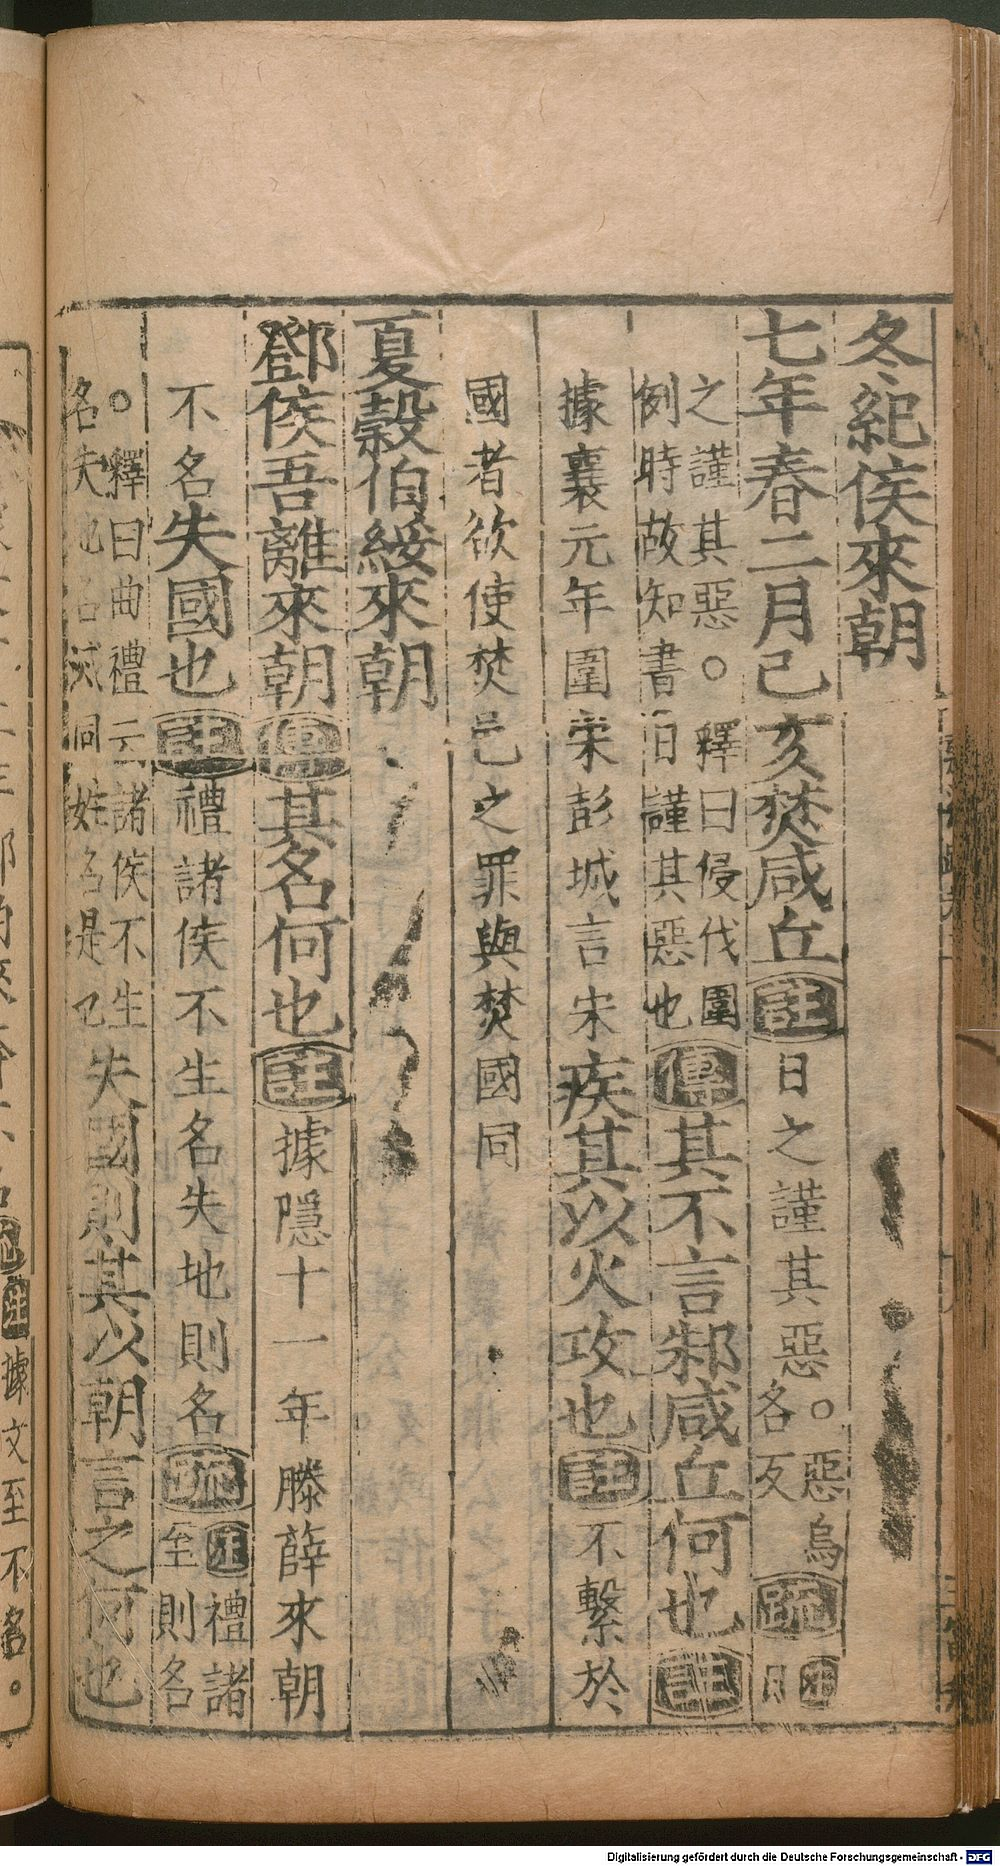 冬紀侯來朝
七年春二月己亥焚咸丘註日之謹其惡○惡烏各反疏註日
之謹其惡○釋曰侵伐圍例時故知書日謹其惡也傳其不言邾咸丘何也註
據襄元年圍宋彭城言宋疾其以火攻也註不繫於
國者欲使焚邑之罪與焚國同
夏穀伯綏來朝
鄧侯吾離來朝傳其名何也註據隱十一年滕薛來朝
不名失國也註禮諸侯不生名失地則名疏註禮諸至則名
○釋曰曲禮云諸侯不生名失地名滅同姓名是也失國則其以朝言之何也
註據文至不名。
Digitalisierung gefördert durch die Deutsche Forschungsgemeinschaft - DFG